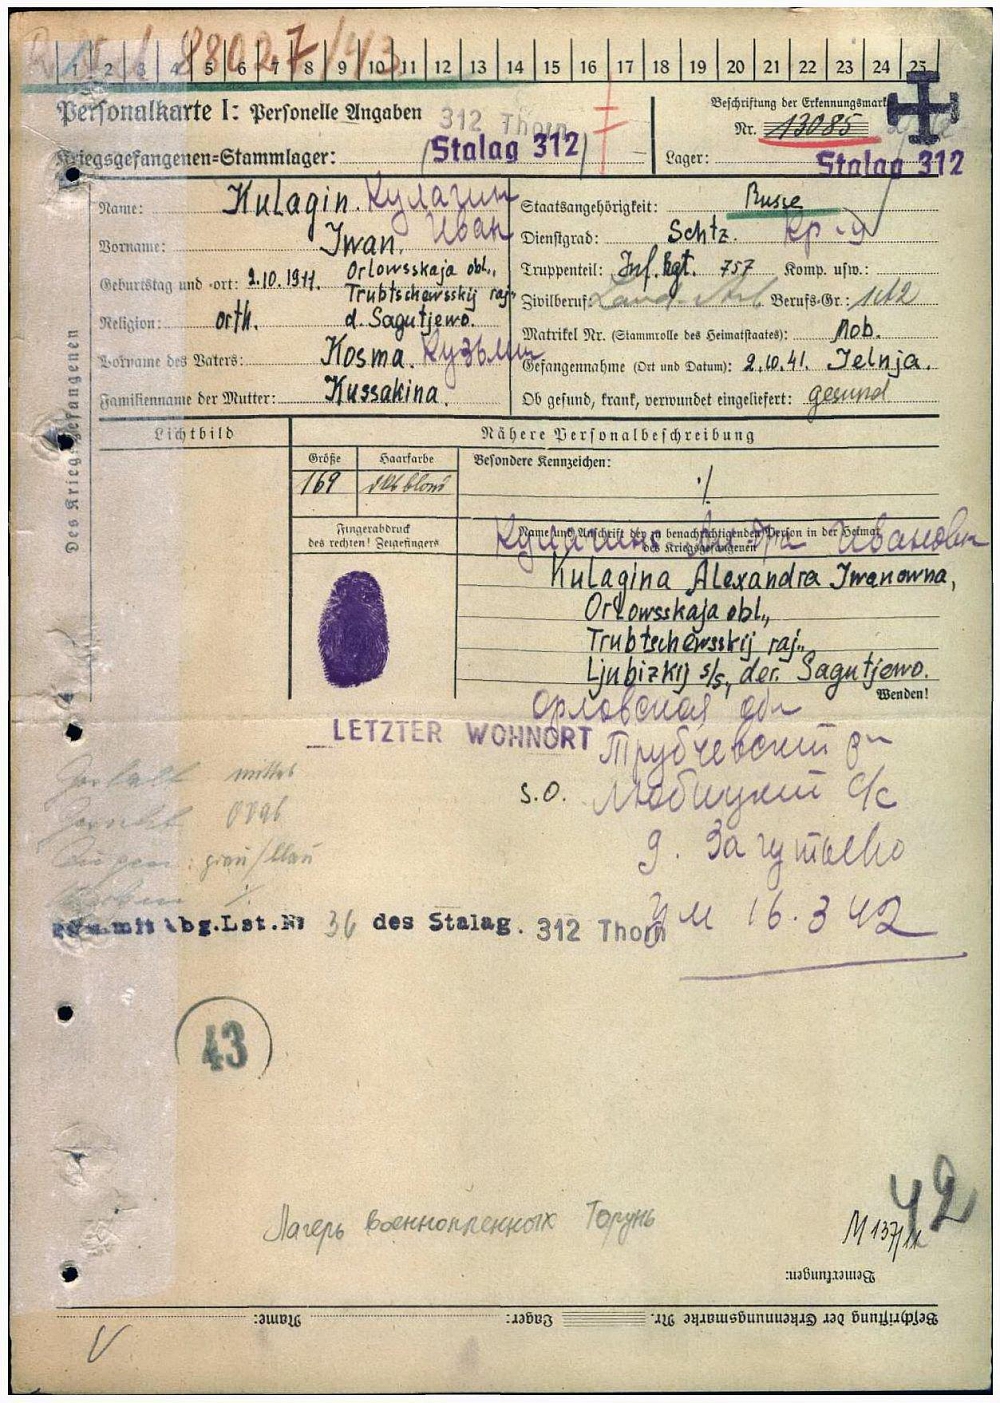 88027/43
1 2 3 4 5 6 7 8 9 10 11 12 13 14 15 16 17 18 19 20 21 22 23 24 25
Personalkarte I: Personelle Angaben
312 Thorn
Kriegsgefangenen-Stammlager: Stalag 312
Beschriftung der Erkennungsmarke
Nr. 13085
Lager: Stalag 312
Des Kriegsgefangenen
Name: Kulagin. Кулагин
Vorname: Iwan. Иван
Geburtstag und -ort: 2.10.1911. Orlowsskaja obl.,
Trubtschewsskij raj.
d. Sagutjewo.
Religion: orth.
Vorname des Vaters: Kosma. Кузьмин
Familienname der Mutter: Kussakina.
Staatsangehörigkeit: Russe
Dienstgrad: Schtz. кр-ц
Truppenteil: Inf. Rgt. 757 Komp. usw.:
Zivilberuf: Land. Arb. Berufs-Gr.:
Matrikel Nr. (Stammrolle des Heimatstaates): Mob.
Gefangennahme (Ort und Datum): 2.10.41. Jelnja.
Ob gesund, krank, verwundet eingeliefert: gesund
Lichtbild
Nähere Personalbeschreibung
Größe Haarfarbe Besondere Kennzeichen:
169 dklblond ./.
Fingerabdruck
des rechten! Zeigefingers
Name und Anschrift der zu benachrichtigenden Person in der Heimat
des Kriegsgefangenen
Кулагина Ивановн
Kulagina Alexandra Iwanowna,
Orlowsskaja obl.,
Trubtschewsskij raj.,
Ljubizkij s/s, der. Sagutjewo.
Wenden!
Орловская обл
LETZTER WOHNORT
Трубчевский рн
s.o.
Любицкий с/с
д. Загутьево
Gestalt mittel
Gesicht oval
Augen: grau/blau
ум 16.3 42
mit Abg.Lst.Nr 36 des Stalag. 312 Thorn
43
42
Лагерь военнопленных Торунь
Bemerkungen:
Beschriftung der Erkennungsmarke Nr. Lager: Name: